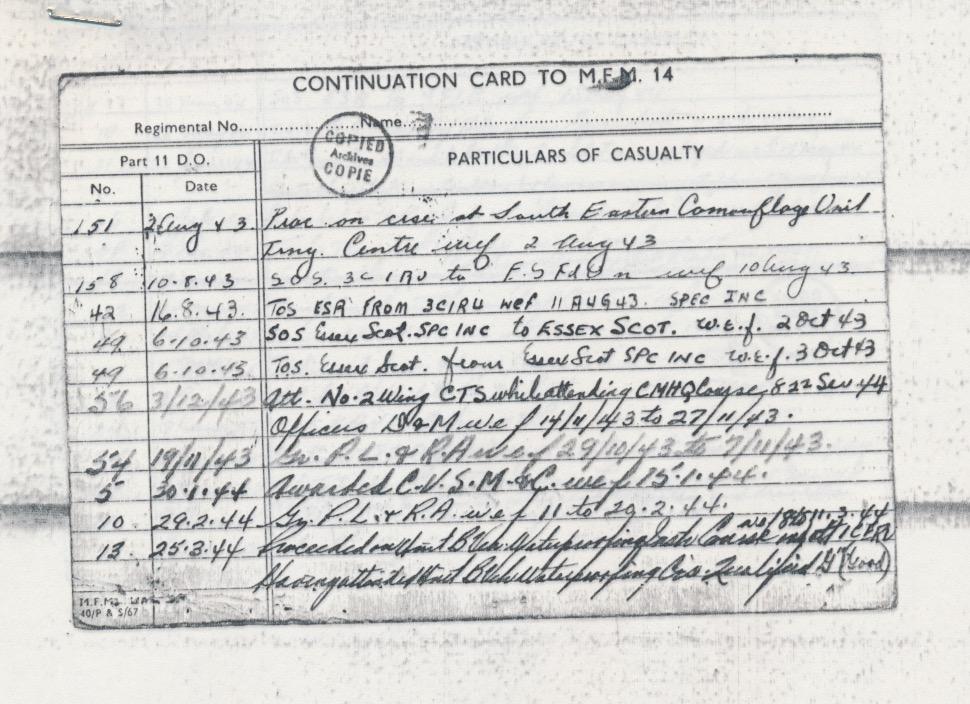 CONTINUATION CARD TO M.F.M. 14
Regimental No. Name
COPIED
Archives
COPIE
Part 11 D.O. PARTICULARS OF CASUALTY
No. Date
151 2 Aug 43 Proc on crse at South Eastern Camouflage Unit
Trng. Centre wef 2 Aug 43
158 10.8.43 S.O.S. 3C IRU to wef 10 Aug 43.
42 16.8.43. TOS ESR FROM 3CIRU wef 11 AUG 43. SPEC INC
49 6.10.43 SOS Essex Scot. SPC INC to ESSEX SCOT. w.e.f. 2 Oct 43
49 6.10.43 T.O.S. Essex Scot. from Essex Scot SPC INC w.e.f. 3 Oct 43
56 3/12/43 Att. No. 2 Wing CTS while attending CMHQ Course 822 Ser 44
Officers D & M w.e.f 14/11/43 to 27/11/43.
54 19/11/43 Gr. P.L. & R.A w.e.f 29/10/43 to 7/11/43.
5 30.1.44 Awarded C.V.S.M. & C. wef 15.1.44.
10. 29.2.44 Gr. P.L. & R.A. w.e.f 11 to 29.2.44.
13. 25.3.44 Proceeded on Unit B Veh Waterproofing Course 11.3.44
Having attended Unit B Veh Waterproofing Crse. Qualified "G" (Good)
40/P & S/67